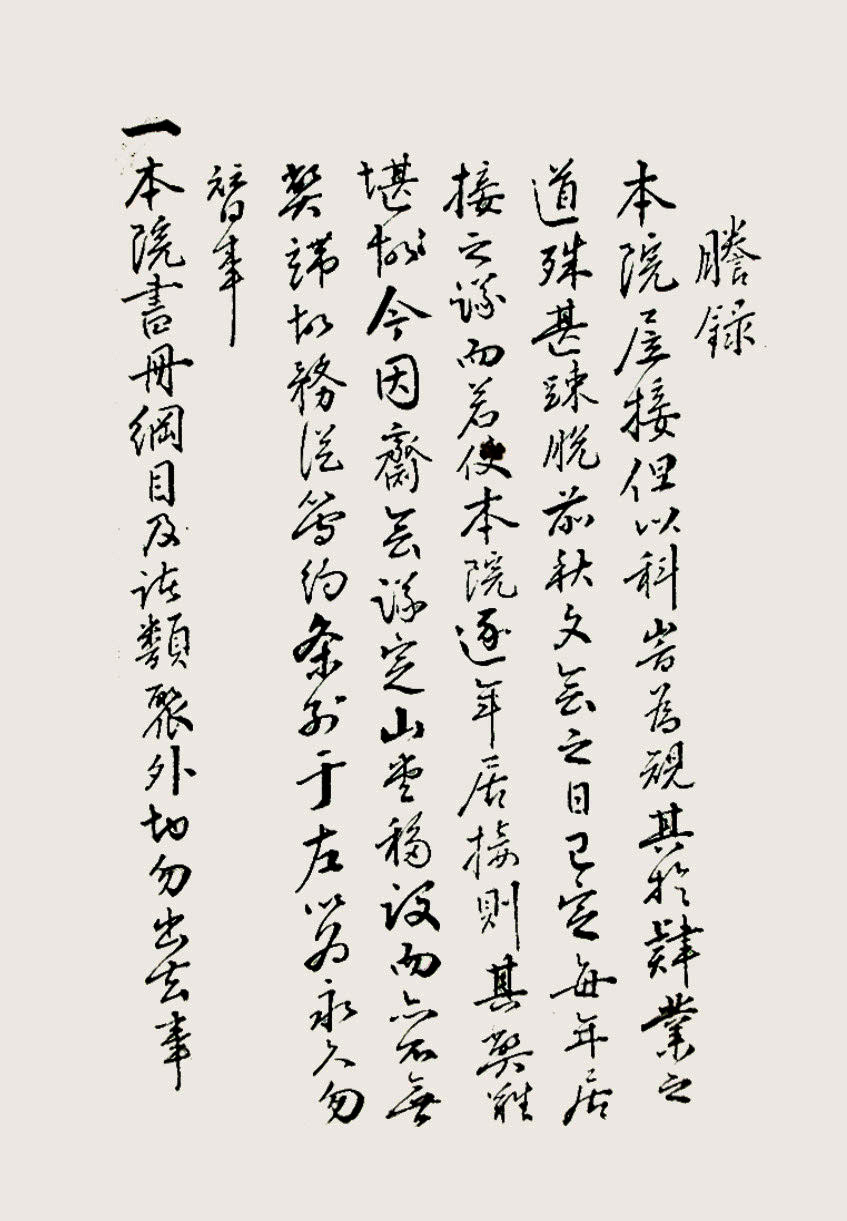 謄錄
本院居接但以科峕為規其於肄業之
道殊甚踈脫前秋文会之日已定每年居
接之議而若使本院逐年居接則其弊難
堪故今因齋会議定山堂移設而亦不無
弊端故務從等約条列于左以为永久勿
替事
一本院書册綱目及諸類聚外切勿出去事